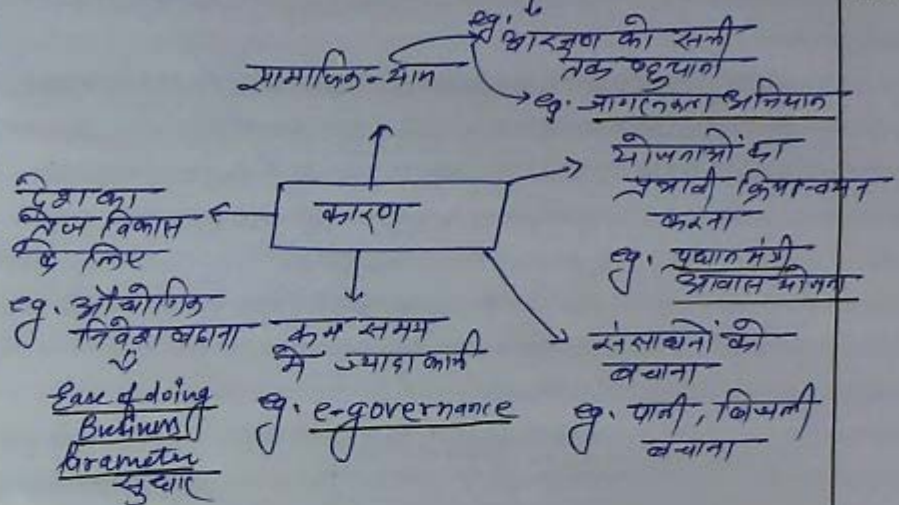 सामाजिक-न्याय
eg. आरक्षण को सभी
तक पहुचाना
eg. जागरूकता अभियान
कारण
योजनाओं का
प्रभावी क्रियान्वयन
करना
eg. प्रधानमंत्री
आवास योजना
देश का
तेज विकास
के लिए
eg. औद्योगिक
निवेश बढाना
Ease of doing
Business
Parameter
सुधार
कम समय
मे ज्यादा काम
eg. e-governance
संसाधनों को
बचाना
eg. पानी, बिजली
बचाना